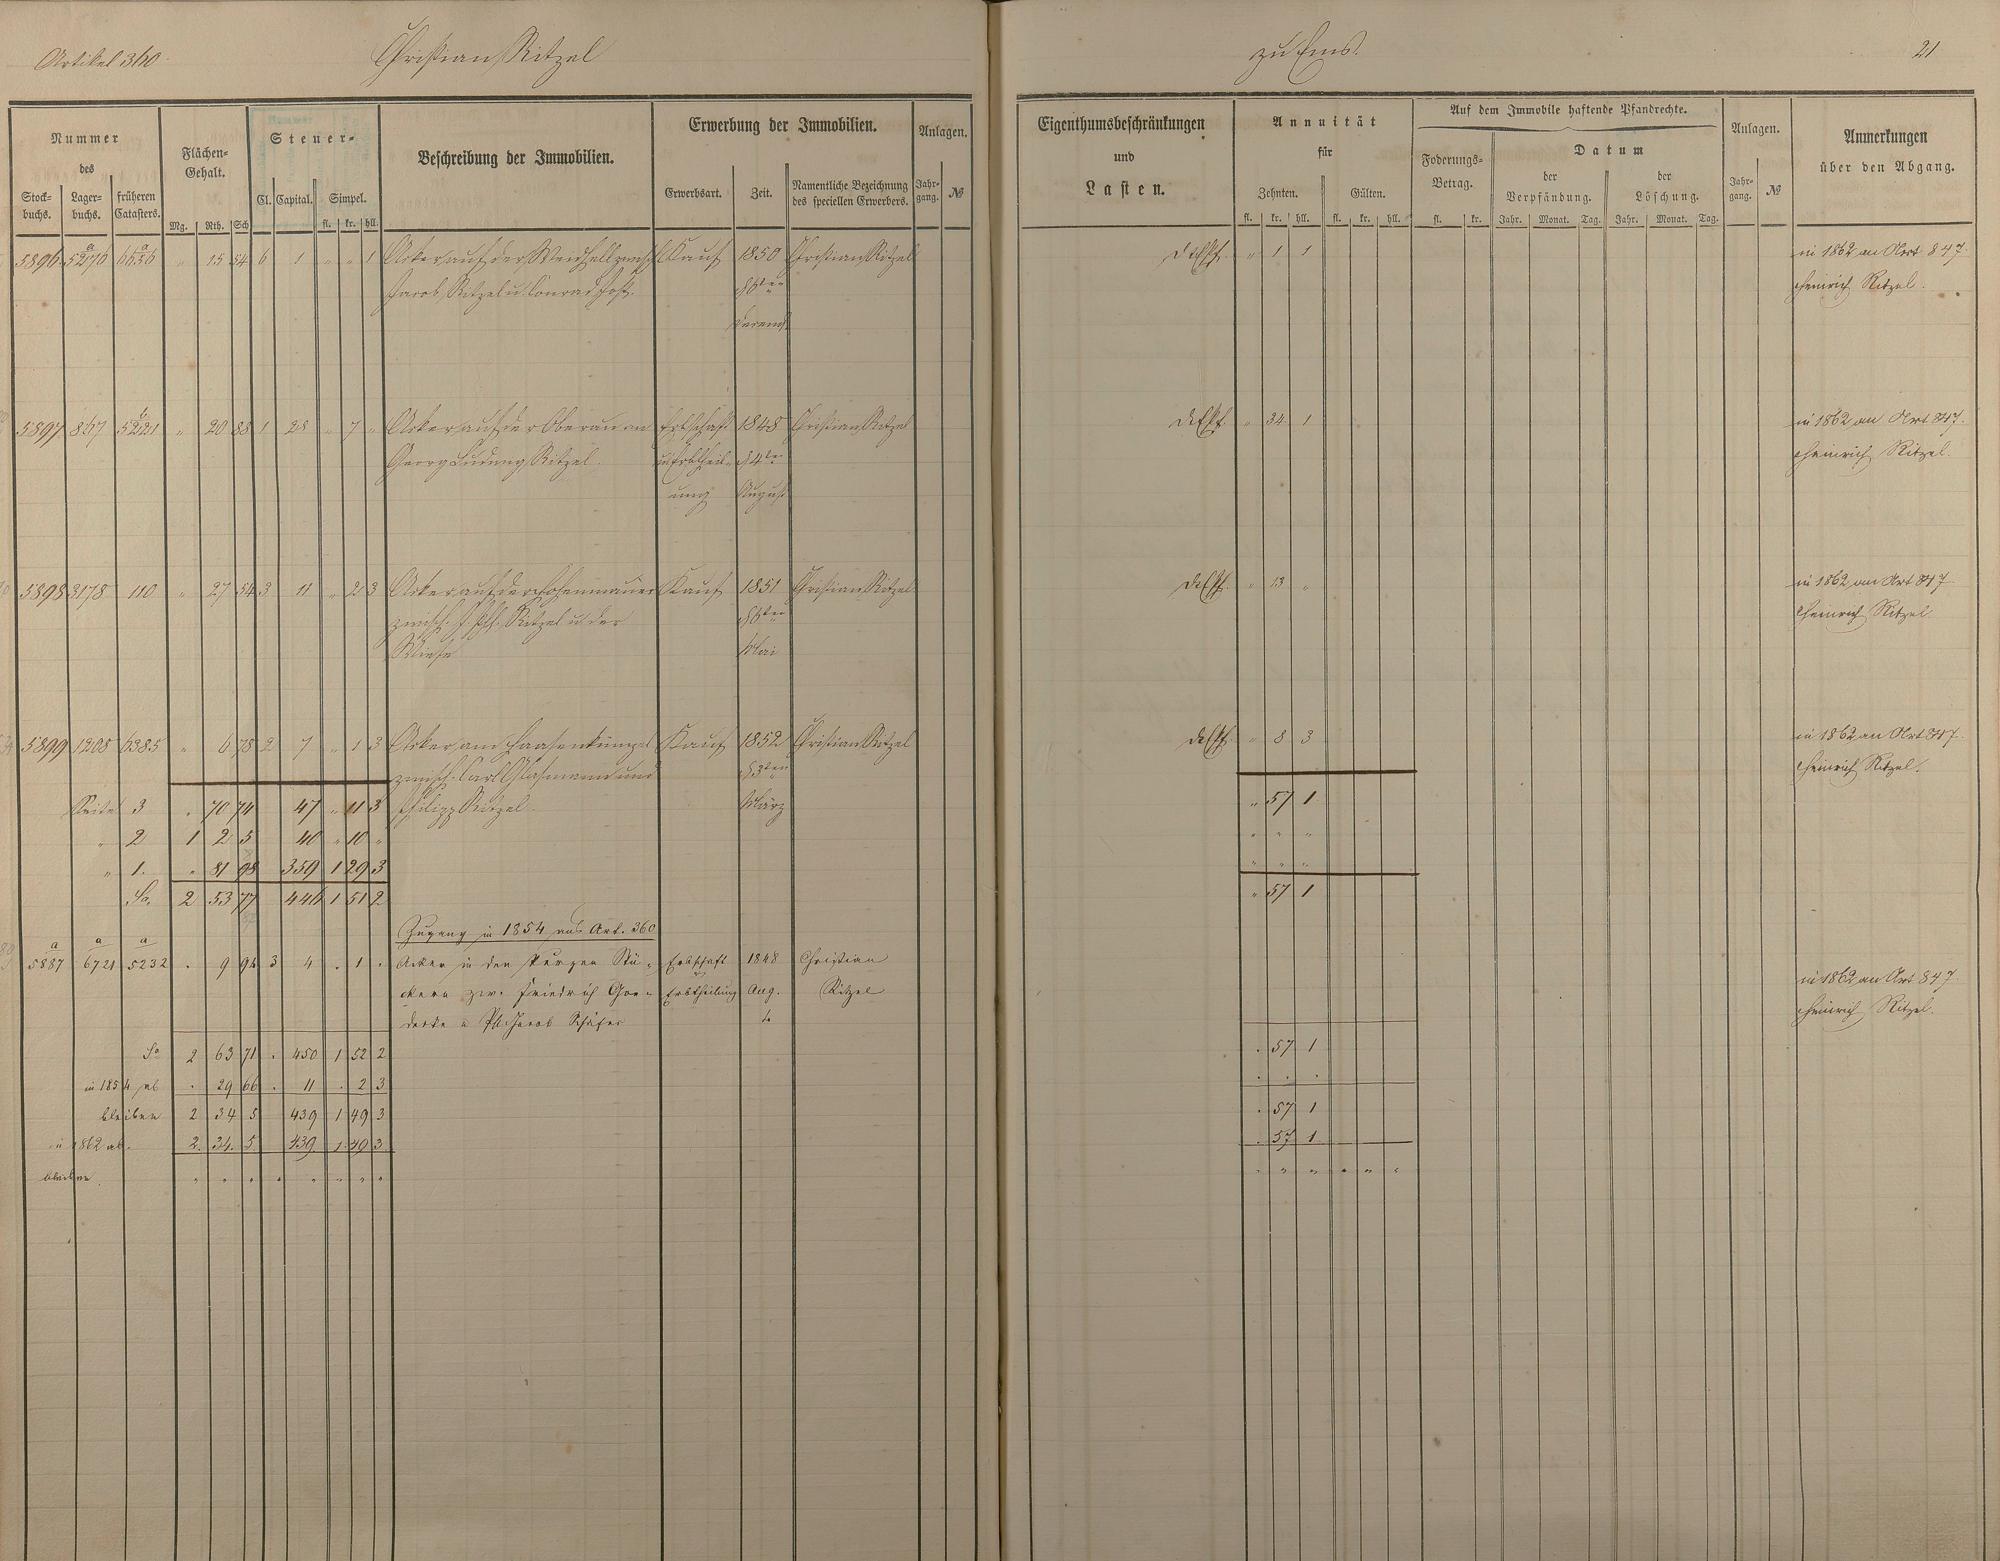 Artikel 360. Christian Ritzel zu Ems. 21
Nummer des
Stock-buchs. Lager-buchs. früheren Catasters.
Flächen-Gehalt.
Mg. Rth. Sch
Steuer-
Cl. Capital. Simpel.
fl. kr. hll.
Beschreibung der Immobilien.
Erwerbung der Immobilien.
Erwerbsart. Zeit. Namentliche Bezeichnung des speciellen Erwerbers.
Anlagen.
Jahr-gang. №
Eigenthumsbeschränkungen
und
Lasten.
Annuität
für
Zehnten. Gülten.
fl. kr. hll. fl. kr. hll.
Auf dem Immobile haftende Pfandrechte.
Foderungs-Betrag.
fl. kr.
Datum
der Verpfändung. der Löschung.
Jahr. Monat. Tag. Jahr. Monat. Tag.
Anlagen.
Jahr-gang. №
Anmerkungen
über den Abgang.
5896 5276 a 6656 a " 15 54 6 1 " " 1 Acker auf der Kauf 1850 Christian Ritzel " 1 1 in 1862 an Art 847.
Jacob Ritzel u. Conrad Jost. d 6ten Heinrich Ritzel.
5897 867 5221 " 20 88 1 28 " 7 " Acker auf der Oberau an Erbschaft 1848 Christian Ritzel " 34 1 in 1862 an Art 847.
Georg Ludwig Ritzel. u. Erbtheil- d 4te Heinrich Ritzel.
ung August
5898 3178 110 " 27 54 3 11 " 2 3 Acker auf der Hohenmauer Kauf 1851 Christian Ritzel " 13 " in 1862 an Art 847
zwisch. Ritzel u. der d 6ten Heinrich Ritzel
Wiese Mai
5899 1208 6385 " 6 78 2 7 " 1 3 Acker am Haasenkümpel Kauf 1852 Christian Ritzel " 8 3 in 1862 an Art 847.
zwisch. Carl Glasmann und d 3ten Heinrich Ritzel.
Seite 3 " 70 74 47 " 11 3 Philipp Ritzel. März " 57 1
" 2 1 2 5 40 " 10 " " " "
" 1. " 81 98 359 1 29 3 " " "
Sa. 2 53 77 446 1 51 2 " 57 1
Zugang in 1854 aus Art. 360
a 5887 a 6721 a 5232 . 9 94 3 4 . 1 . Acker in den Kurzen Stü- Erbschaft 1848 Christian in 1862 an Art 847
ckern zw. Friedrich Goe- u. Erbtheilung Aug. Ritzel Heinrich Ritzel.
decke u Ph. Jacob Schäfer 4
Sa 2 63 71 . 450 1 52 2 . 57 1
in 1854 ab . 29 66 . 11 . 2 3 . . .
bleiben 2 34 5 439 1 49 3 . 57 1
in 1862 ab. 2. 34. 5. 439. 1. 49 3. . 57 1
bleiben. " " " " " " " " " " " " " "